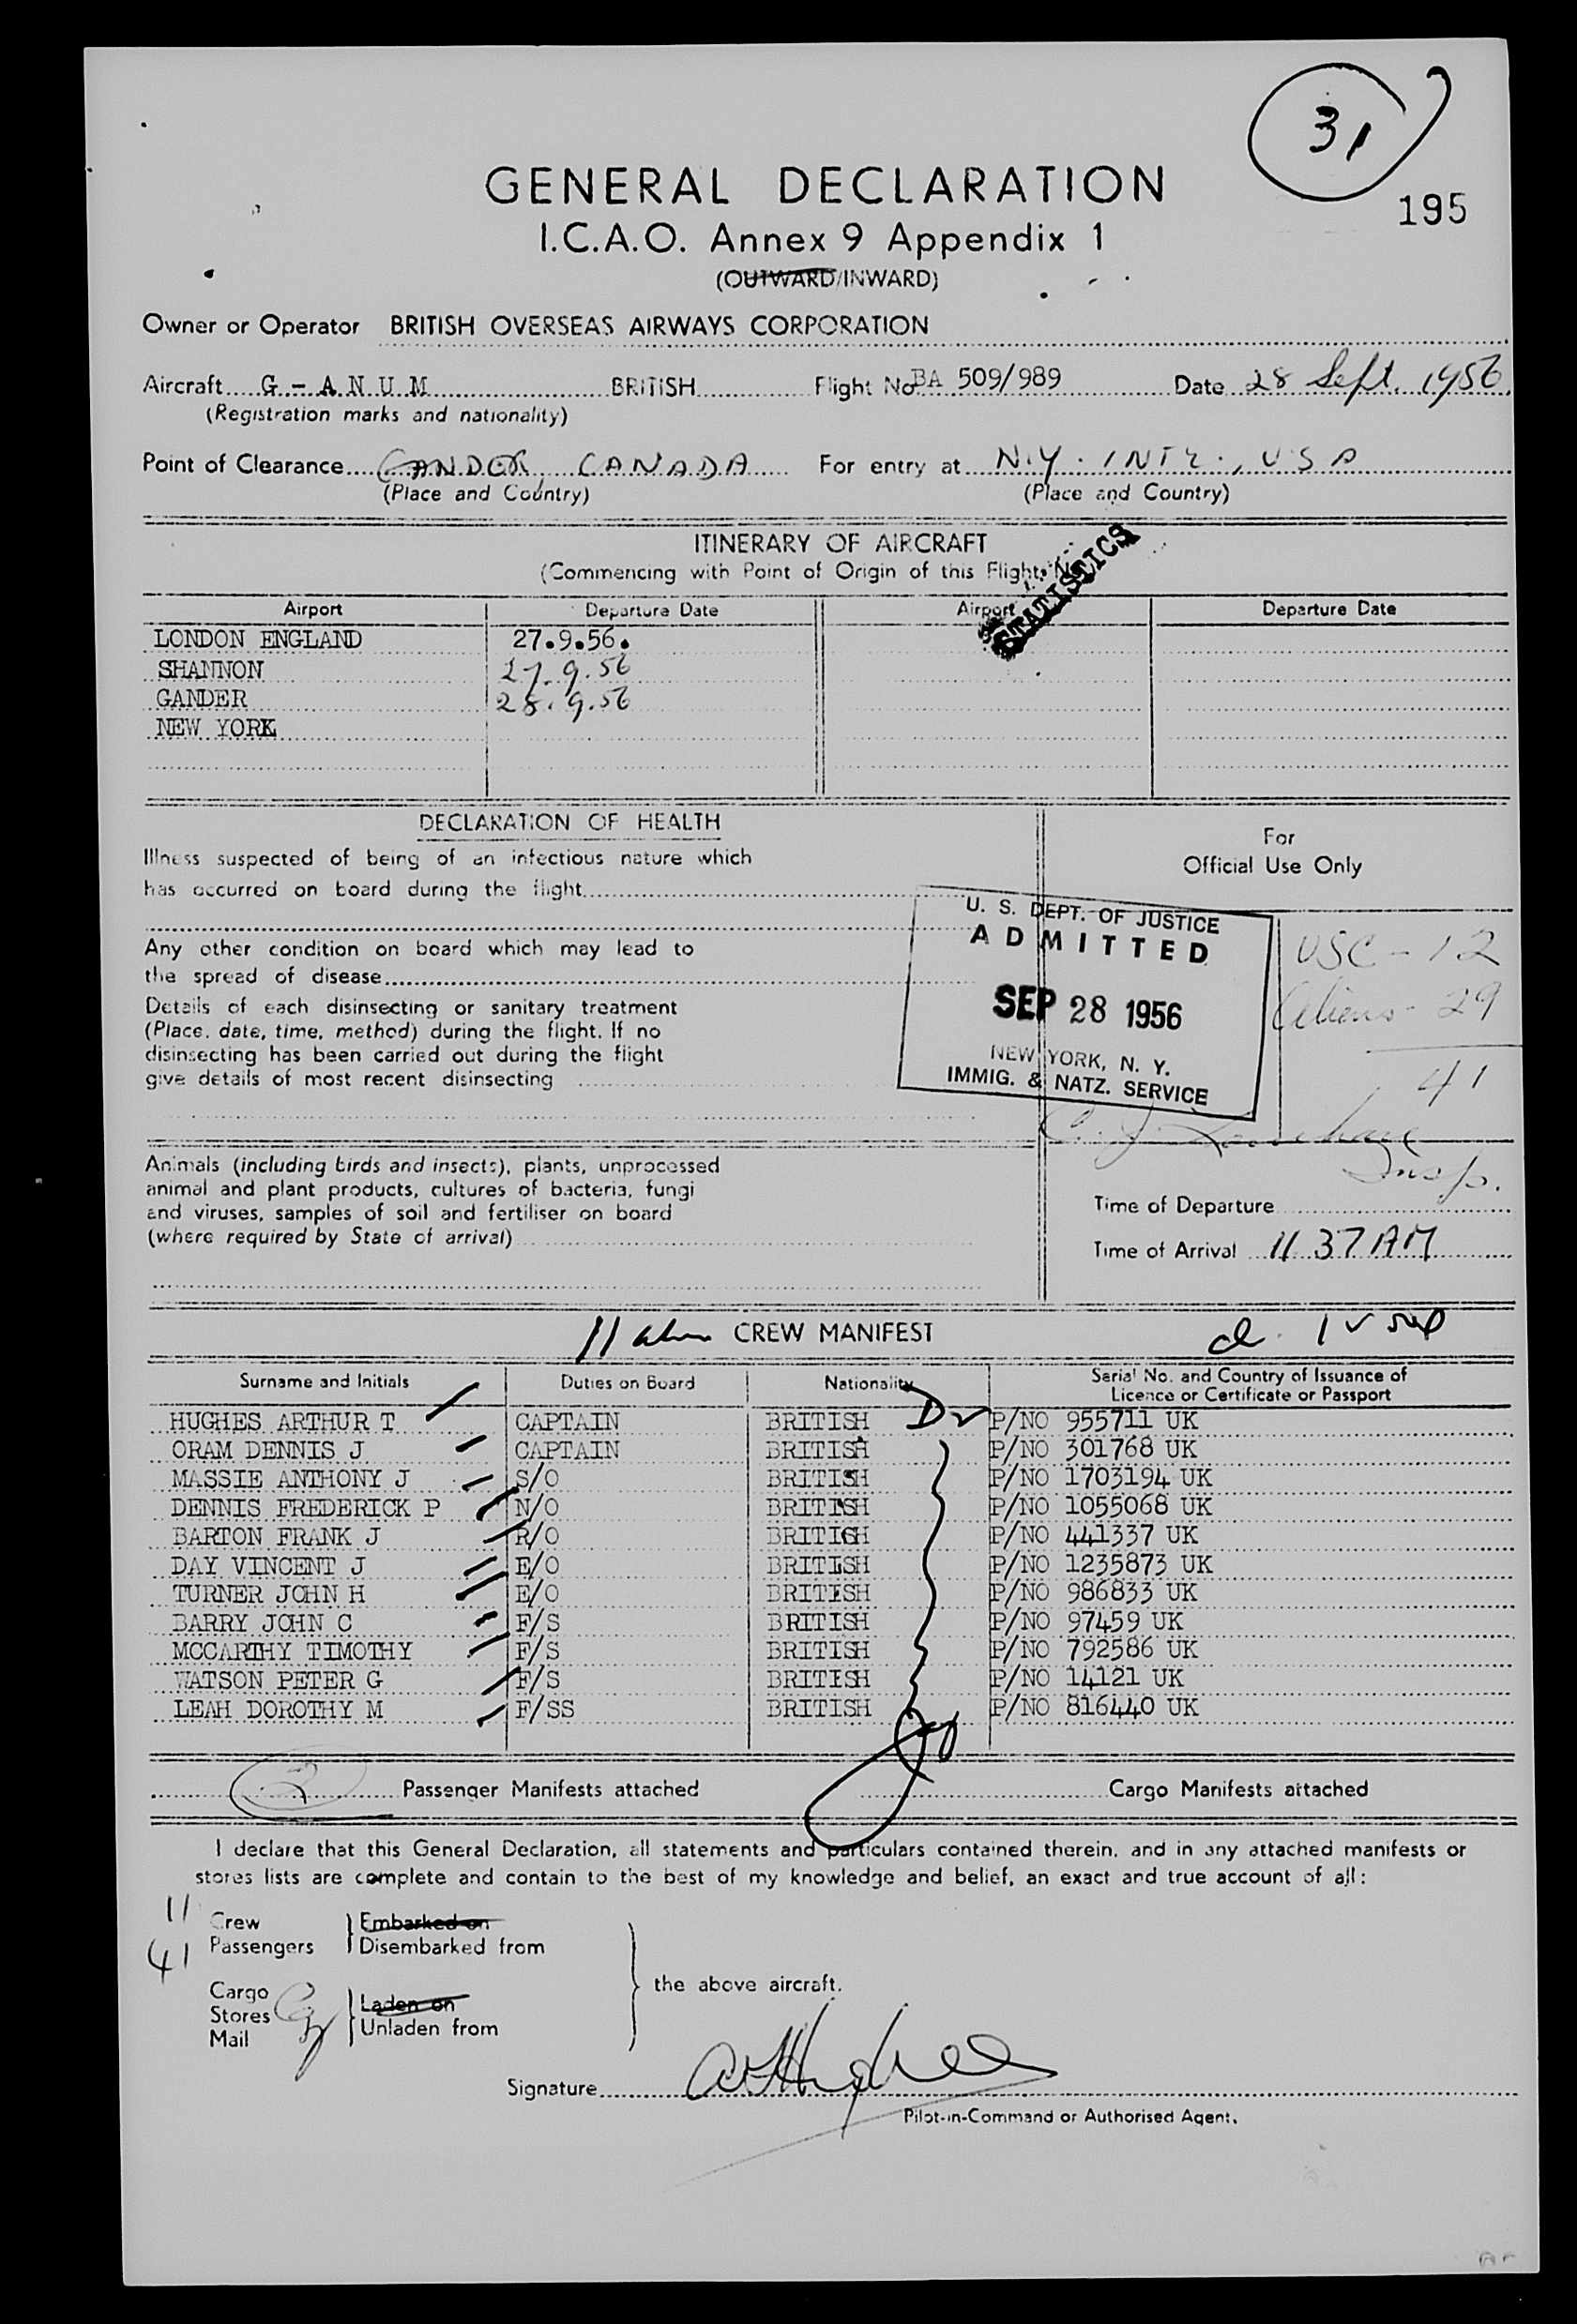 31
195
GENERAL DECLARATION
I.C.A.O. Annex 9 Appendix 1
(OUTWARD/INWARD)
Owner or Operator BRITISH OVERSEAS AIRWAYS CORPORATION
Aircraft G - A N U M BRITISH Flight No BA 509/989 Date 28 Sept. 1956
(Registration marks and nationality)
Point of Clearance GANDER, CANADA For entry at N.Y. INTL., USA
(Place and Country) (Place and Country)
ITINERARY OF AIRCRAFT
(Commencing with Point of Origin of this Flight
STATISTICS
Airport Departure Date Airport Departure Date
LONDON ENGLAND 27.9.56.
SHANNON 27.9.56
GANDER 28.9.56
NEW YORK
DECLARATION OF HEALTH
For
Official Use Only
Illness suspected of being of an infectious nature which
has occurred on board during the flight
Any other condition on board which may lead to
the spread of disease
Details of each disinsecting or sanitary treatment
(Place, date, time, method) during the flight. If no
disinsecting has been carried out during the flight
give details of most recent disinsecting
U. S. DEPT. OF JUSTICE
ADMITTED
SEP 28 1956
NEW YORK, N. Y.
IMMIG. & NATZ. SERVICE
USC - 12
Aliens - 29
41
Insp.
Animals (including birds and insects), plants, unprocessed
animal and plant products, cultures of bacteria, fungi
and viruses, samples of soil and fertiliser on board
(where required by State of arrival)
Time of Departure
Time of Arrival 11 37 AM
11 CREW MANIFEST
Surname and Initials Duties on Board Nationality Serial No. and Country of Issuance of
Licence or Certificate or Passport
HUGHES ARTHUR T CAPTAIN BRITISH P/NO 955711 UK
ORAM DENNIS J CAPTAIN BRITISH P/NO 301768 UK
MASSIE ANTHONY J S/O BRITISH P/NO 1703194 UK
DENNIS FREDERICK P N/O BRITISH P/NO 1055068 UK
BARTON FRANK J R/O BRITISH P/NO 441337 UK
DAY VINCENT J E/O BRITISH P/NO 1235873 UK
TURNER JOHN H E/O BRITISH P/NO 986833 UK
BARRY JOHN C F/S BRITISH P/NO 97459 UK
MCCARTHY TIMOTHY F/S BRITISH P/NO 792586 UK
WATSON PETER G F/S BRITISH P/NO 14121 UK
LEAH DOROTHY M F/SS BRITISH P/NO 816440 UK
Passenger Manifests attached Cargo Manifests attached
I declare that this General Declaration, all statements and particulars contained therein, and in any attached manifests or
stores lists are complete and contain to the best of my knowledge and belief, an exact and true account of all:
11 Crew Embarked on
41 Passengers Disembarked from
the above aircraft.
Cargo
Stores Laden on
Mail Unladen from
Signature
Pilot-in-Command or Authorised Agent.